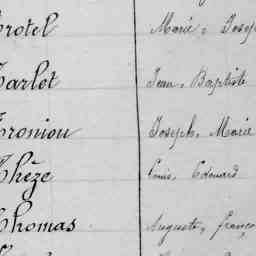 Trotel Marie, Josep
Tarlet Jean, Baptiste
Troniou Joseph, Marie
Thèze Louis, Edouard
Thomas Auguste, franço